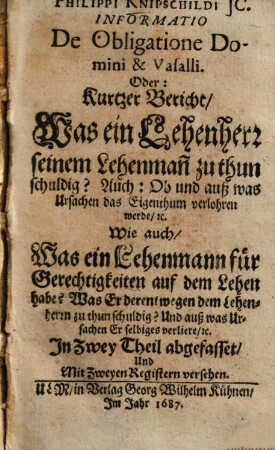 PHILIPPI KNIPSCHILDI JC.
INFORMATIO
De Obligatione Do-
mini & Vasalli.
Oder:
Kurtzer Bericht/
Was ein Lehenherr
seinem Lehenmañ zu thun
schuldig? Auch: Ob und auß was
Ursachen das Eigenthum verlohren
werde/ ꝛc.
Wie auch/
Was ein Lehenmann für
Gerechtigkeiten auf dem Lehen
habe? Was Er derentwegen dem Lehen-
herrn zu thun schuldig? Und auß was Ur-
sachen Er selbiges verliere/ ꝛc.
In Zwey Theil abgefasset/
Und
Mit Zweyen Registern versehen.
ULM/ in Verlag Georg Wilhelm Kühnen/
Im Jahr 1687.